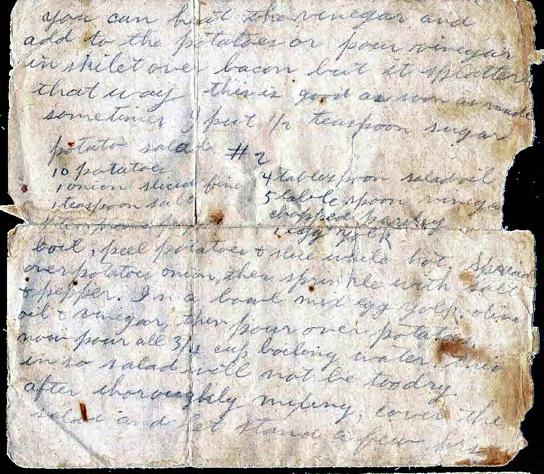 you can heat the vinegar and
add to the potatoes or pour vinegar
in skilet over bacon but it splatters
that way this is good as soon as made
sometimes I put 1/2 teaspoon sugar
potato salad #2
10 potatoes
1 onion sliced fine
1 teaspoon salt
4 tablespoon salad oil
5 table spoon vinegar
chopped parsley
1 egg yolk
boil, peel potatoes & slice while hot, spread
over potatoes onion, then sprinkle with salt
& pepper. In a bowl mix egg yolk, olive
oil & vinegar, then pour over potatoes
now pour all 3/4 cup boiling water, mix
in so salad will not be too dry
after thoroughly mixing, cover the
salad and let stand a few hrs